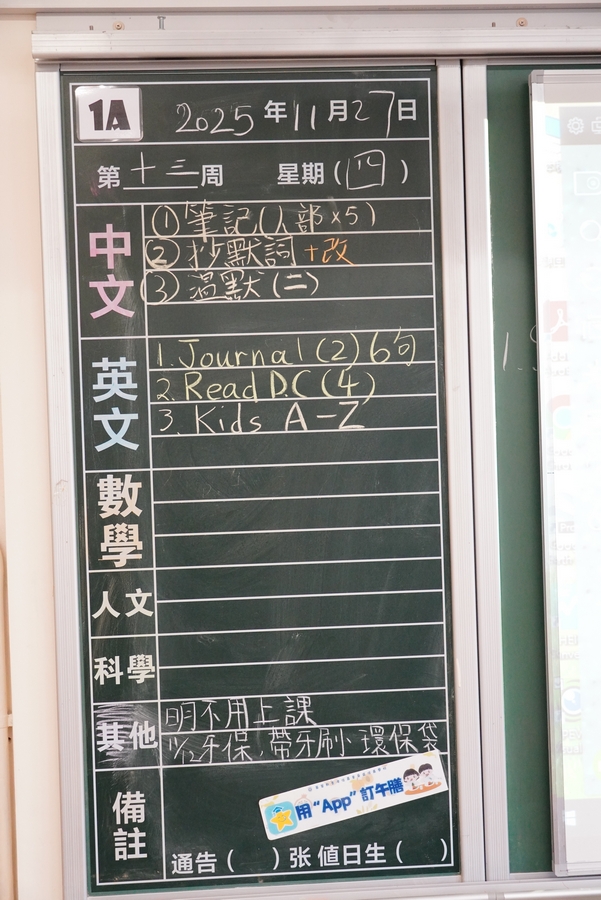 1A 2025年11月27日
第十三周 星期(四)
中文
① 筆記(人部x5)
② 抄默詞+改
③ 溫默(二)
英文
1. Journal (2) 6句
2. Read D.C (4)
3. Kids A-Z
數學
人文
科學
其他
明不用上課
牙保,帶牙刷、環保袋
備註
用“App”訂午膳
通告( )张 值日生( )